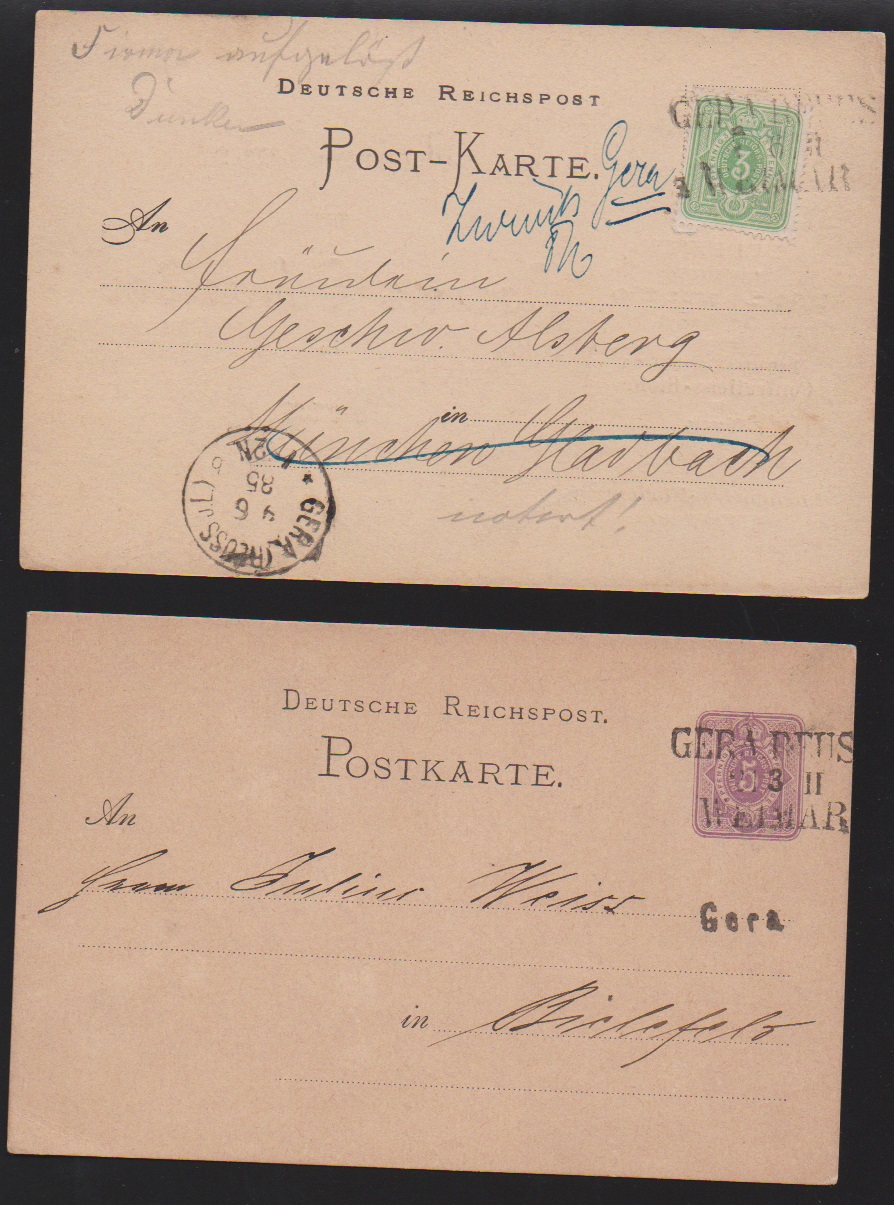 Firma aufgelöst
Dunker
DEUTSCHE REICHSPOST
POST-KARTE.
GERA REUSS
8 II
WEIMAR
3
Zurück Gera
An
Fräulein
Geschw. Alsberg
in
München Gladbach
notirt!
GERA (REUSS J.L.)
9 6
85
1 2N
DEUTSCHE REICHSPOST.
POSTKARTE.
GERA REUS
3 II
WEIMAR
5
An
Herrn Julius Weiss
Gera
in Bielefeld